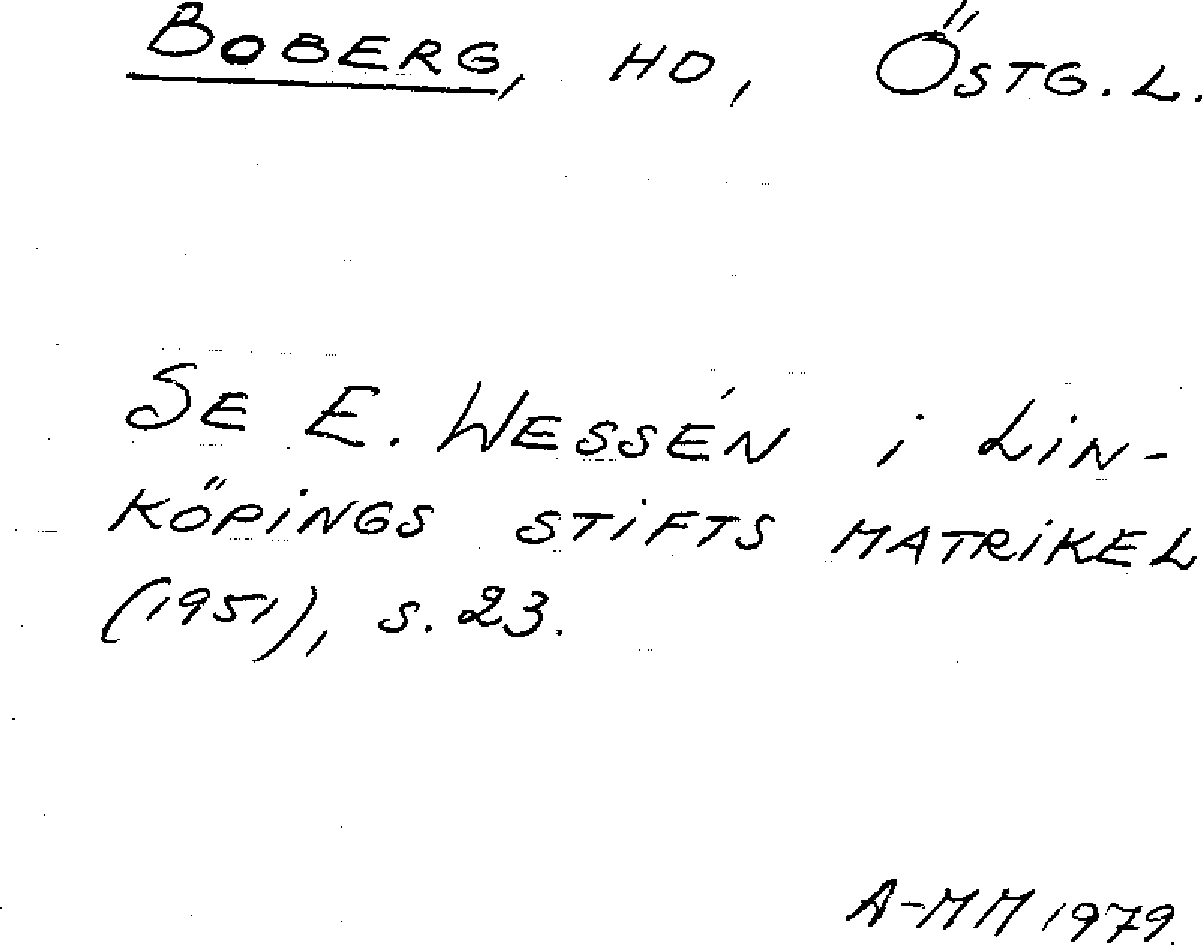 BOBERG, HD, ÖSTG. L.
SE E. WESSÉN i LiN-
KÖPiNGS STiFTS MATRiKEL
(1951), s. 23.
A-MM 1979.